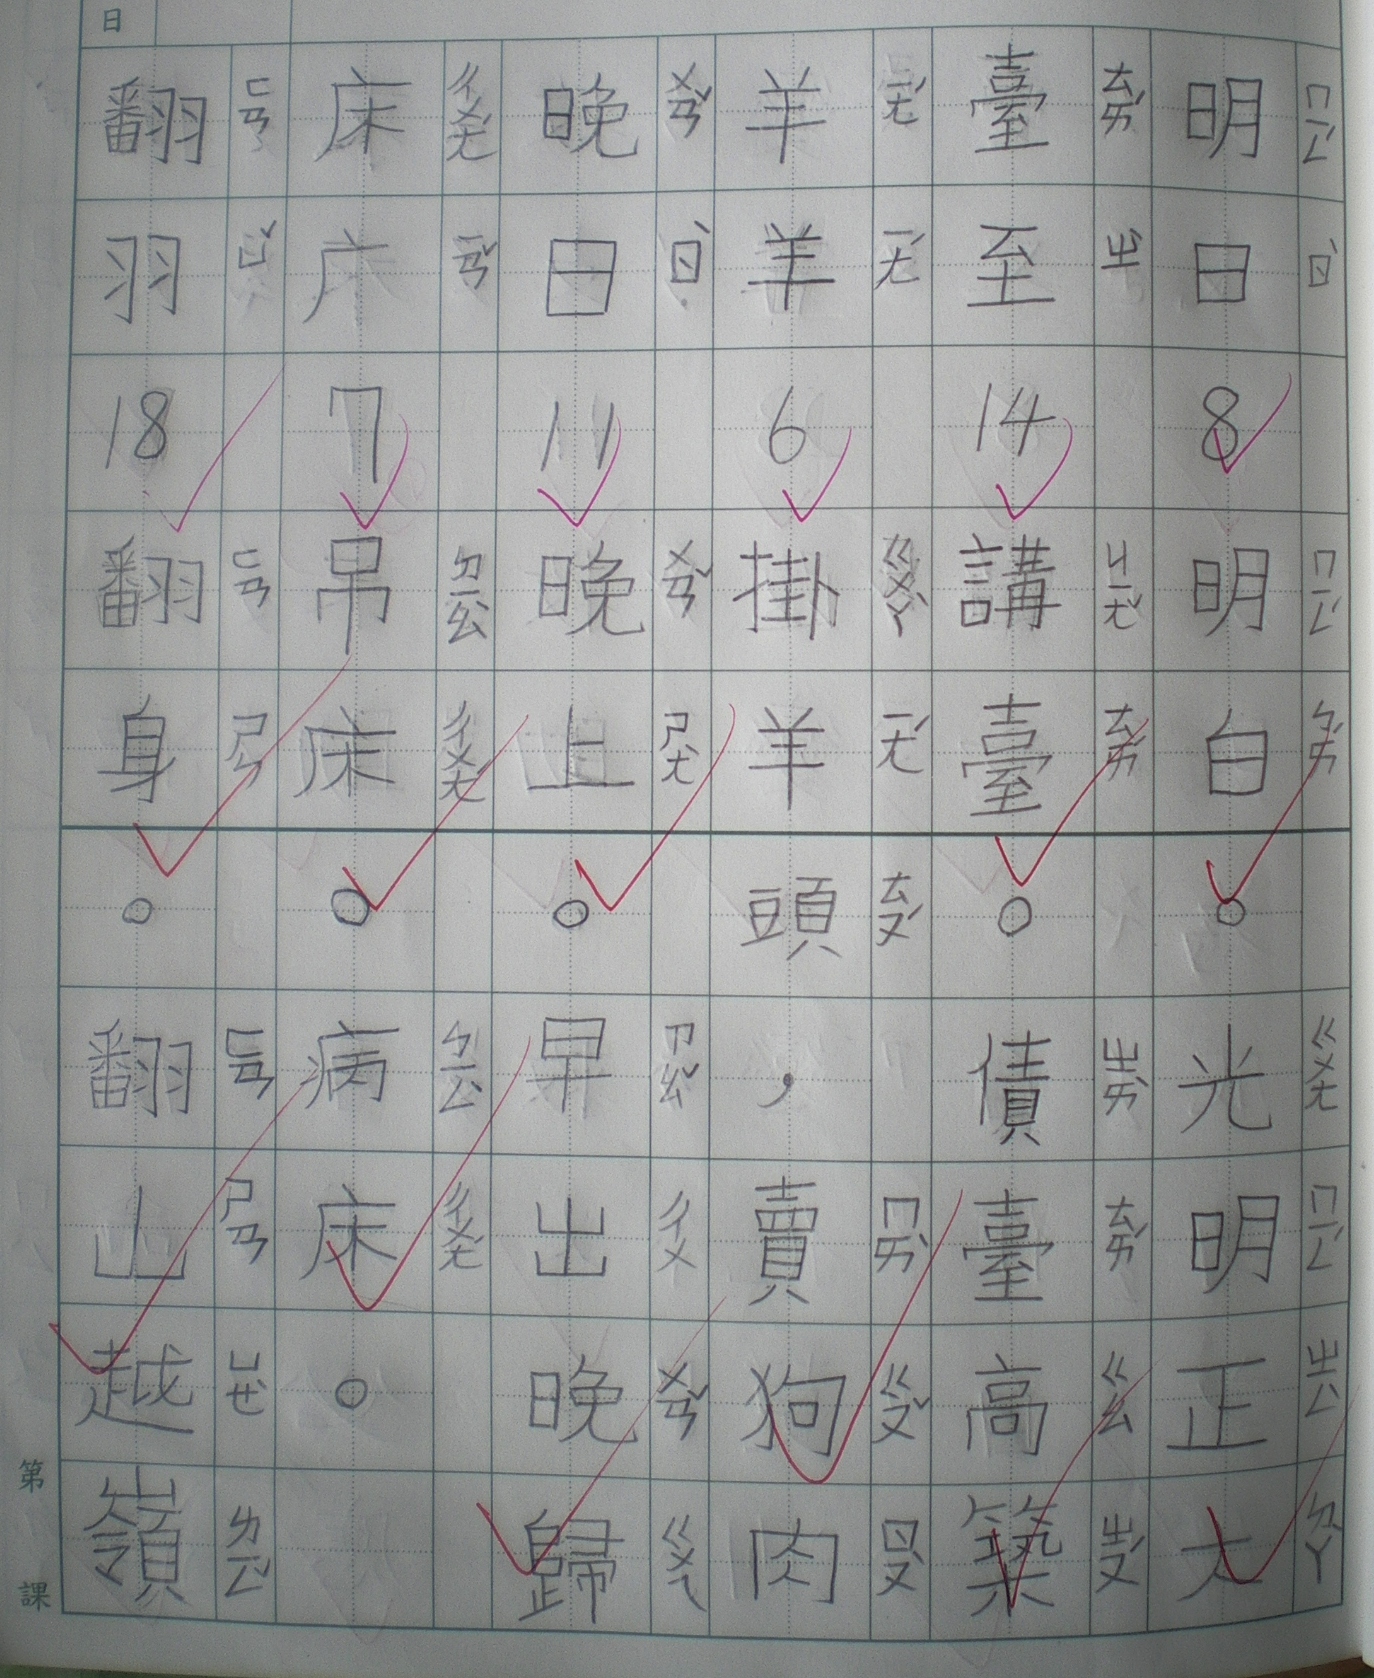 日
明日8明白。光明正大
ㄇㄧㄥˊ ㄖˋ ㄇㄧㄥˊ ㄅㄞˊ ㄍㄨㄤ ㄇㄧㄥˊ ㄓㄥˋ ㄉㄚˋ
臺至14講臺。債臺高築
ㄊㄞˊ ㄓˋ ㄐㄧㄤˇ ㄊㄞˊ ㄓㄞˋ ㄊㄞˊ ㄍㄠ ㄓㄨˊ
羊羊6掛羊頭，賣狗肉
ㄧㄤˊ ㄧㄤˊ ㄍㄨㄚˋ ㄧㄤˊ ㄊㄡˊ ㄇㄞˋ ㄍㄡˇ ㄖㄡˋ
晚日11晚上。早出晚歸
ㄨㄢˇ ㄖˋ ㄨㄢˇ ㄕㄤˋ ㄗㄠˇ ㄔㄨ ㄨㄢˇ ㄍㄨㄟ
床广7吊床。病床。
ㄔㄨㄤˊ ㄧㄢˇ ㄉㄧㄠˋ ㄔㄨㄤˊ ㄅㄧㄥˋ ㄔㄨㄤˊ
翻羽18翻身。翻山越嶺
ㄈㄢ ㄩˇ ㄈㄢ ㄕㄣ ㄈㄢ ㄕㄢ ㄩㄝˋ ㄌㄧㄥˇ
第 課